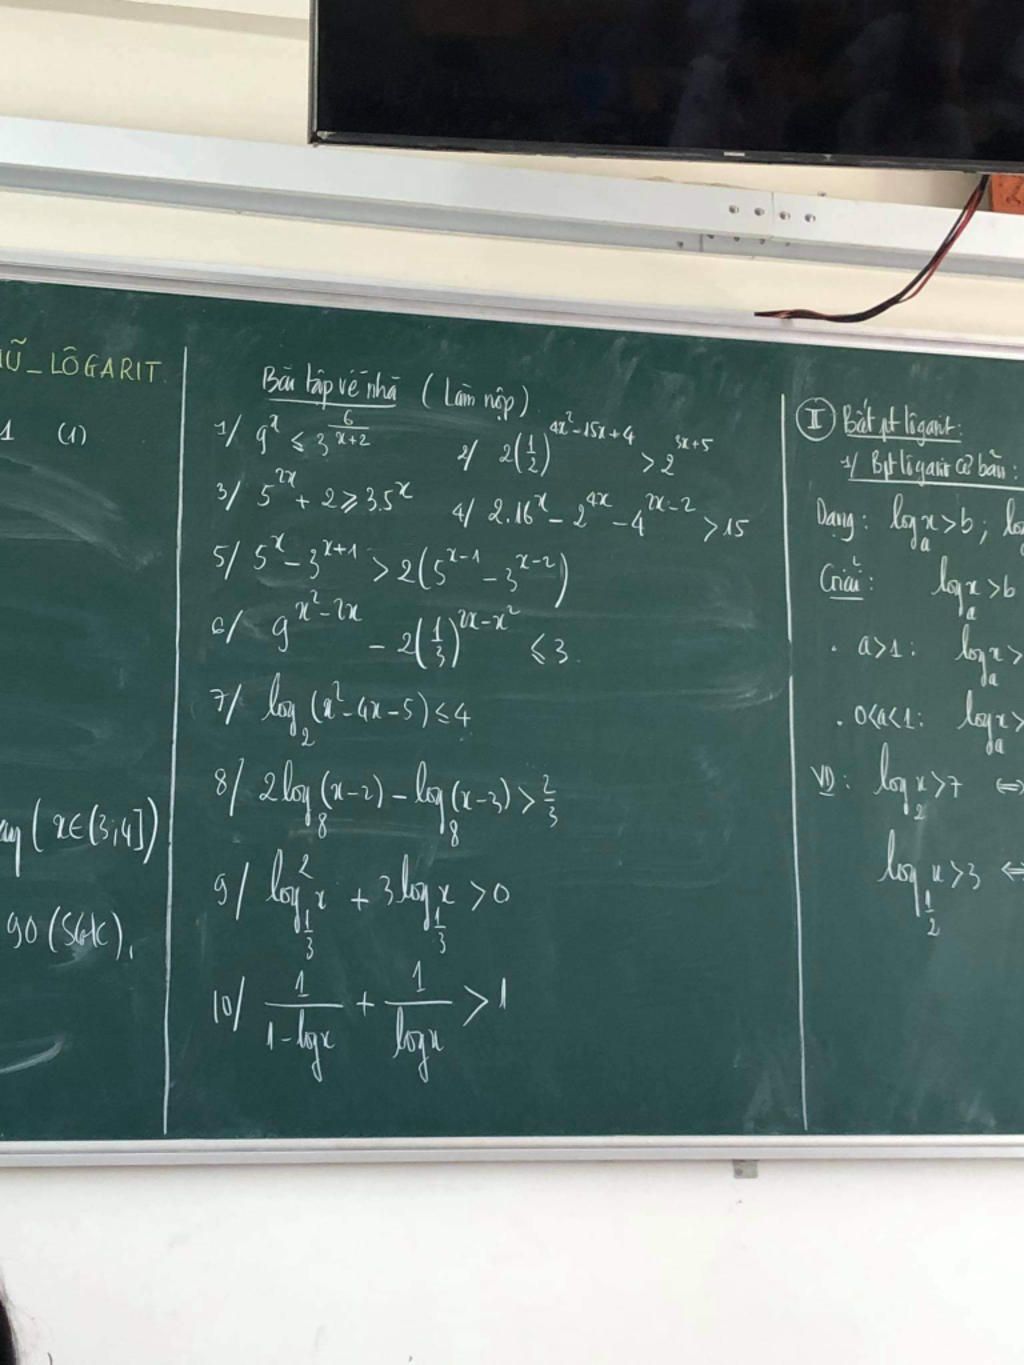 LÔGARIT
1 (1)
(x∈(3;4])
90 (SGK).
Bài tập về nhà (Làm nộp)
1/ 9^x ≤ 3^(6/(x+2)) 2/ 2(1/2)^(4x²-15x+4) > 2^(3x+5)
3/ 5^(2x) + 2 ≥ 3.5^x 4/ 2.16^x - 2^(4x) - 4^(2x-2) > 15
5/ 5^x - 3^(x+1) > 2(5^(x-1) - 3^(x-2))
6/ 9^(x²-2x) - 2(1/3)^(2x-x²) ≤ 3.
7/ log₂(x²-4x-5) ≤ 4
8/ 2log₈(x-2) - log₈(x-3) > 2/3
9/ log²_(1/3) x + 3log_(1/3) x > 0
10/ 1/(1-logx) + 1/(logx) > 1
II Bất pt lôgarit:
1/ Bpt lôgarit cơ bản:
Dạng: logₐx > b;
Giải: logₐx > b
. a>1: logₐx >
. 0<a<1: logₐx >
VD: log₂x > 7 ⇔
log_(1/2) x > 3 ⇔